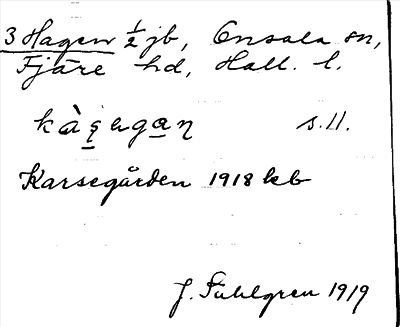 3 Hagen ½ jb, Onsala sn,
Fjäre hd, Hall. l.
s. 11.
Karsegården 1918 kb
J. Sahlgren 1919